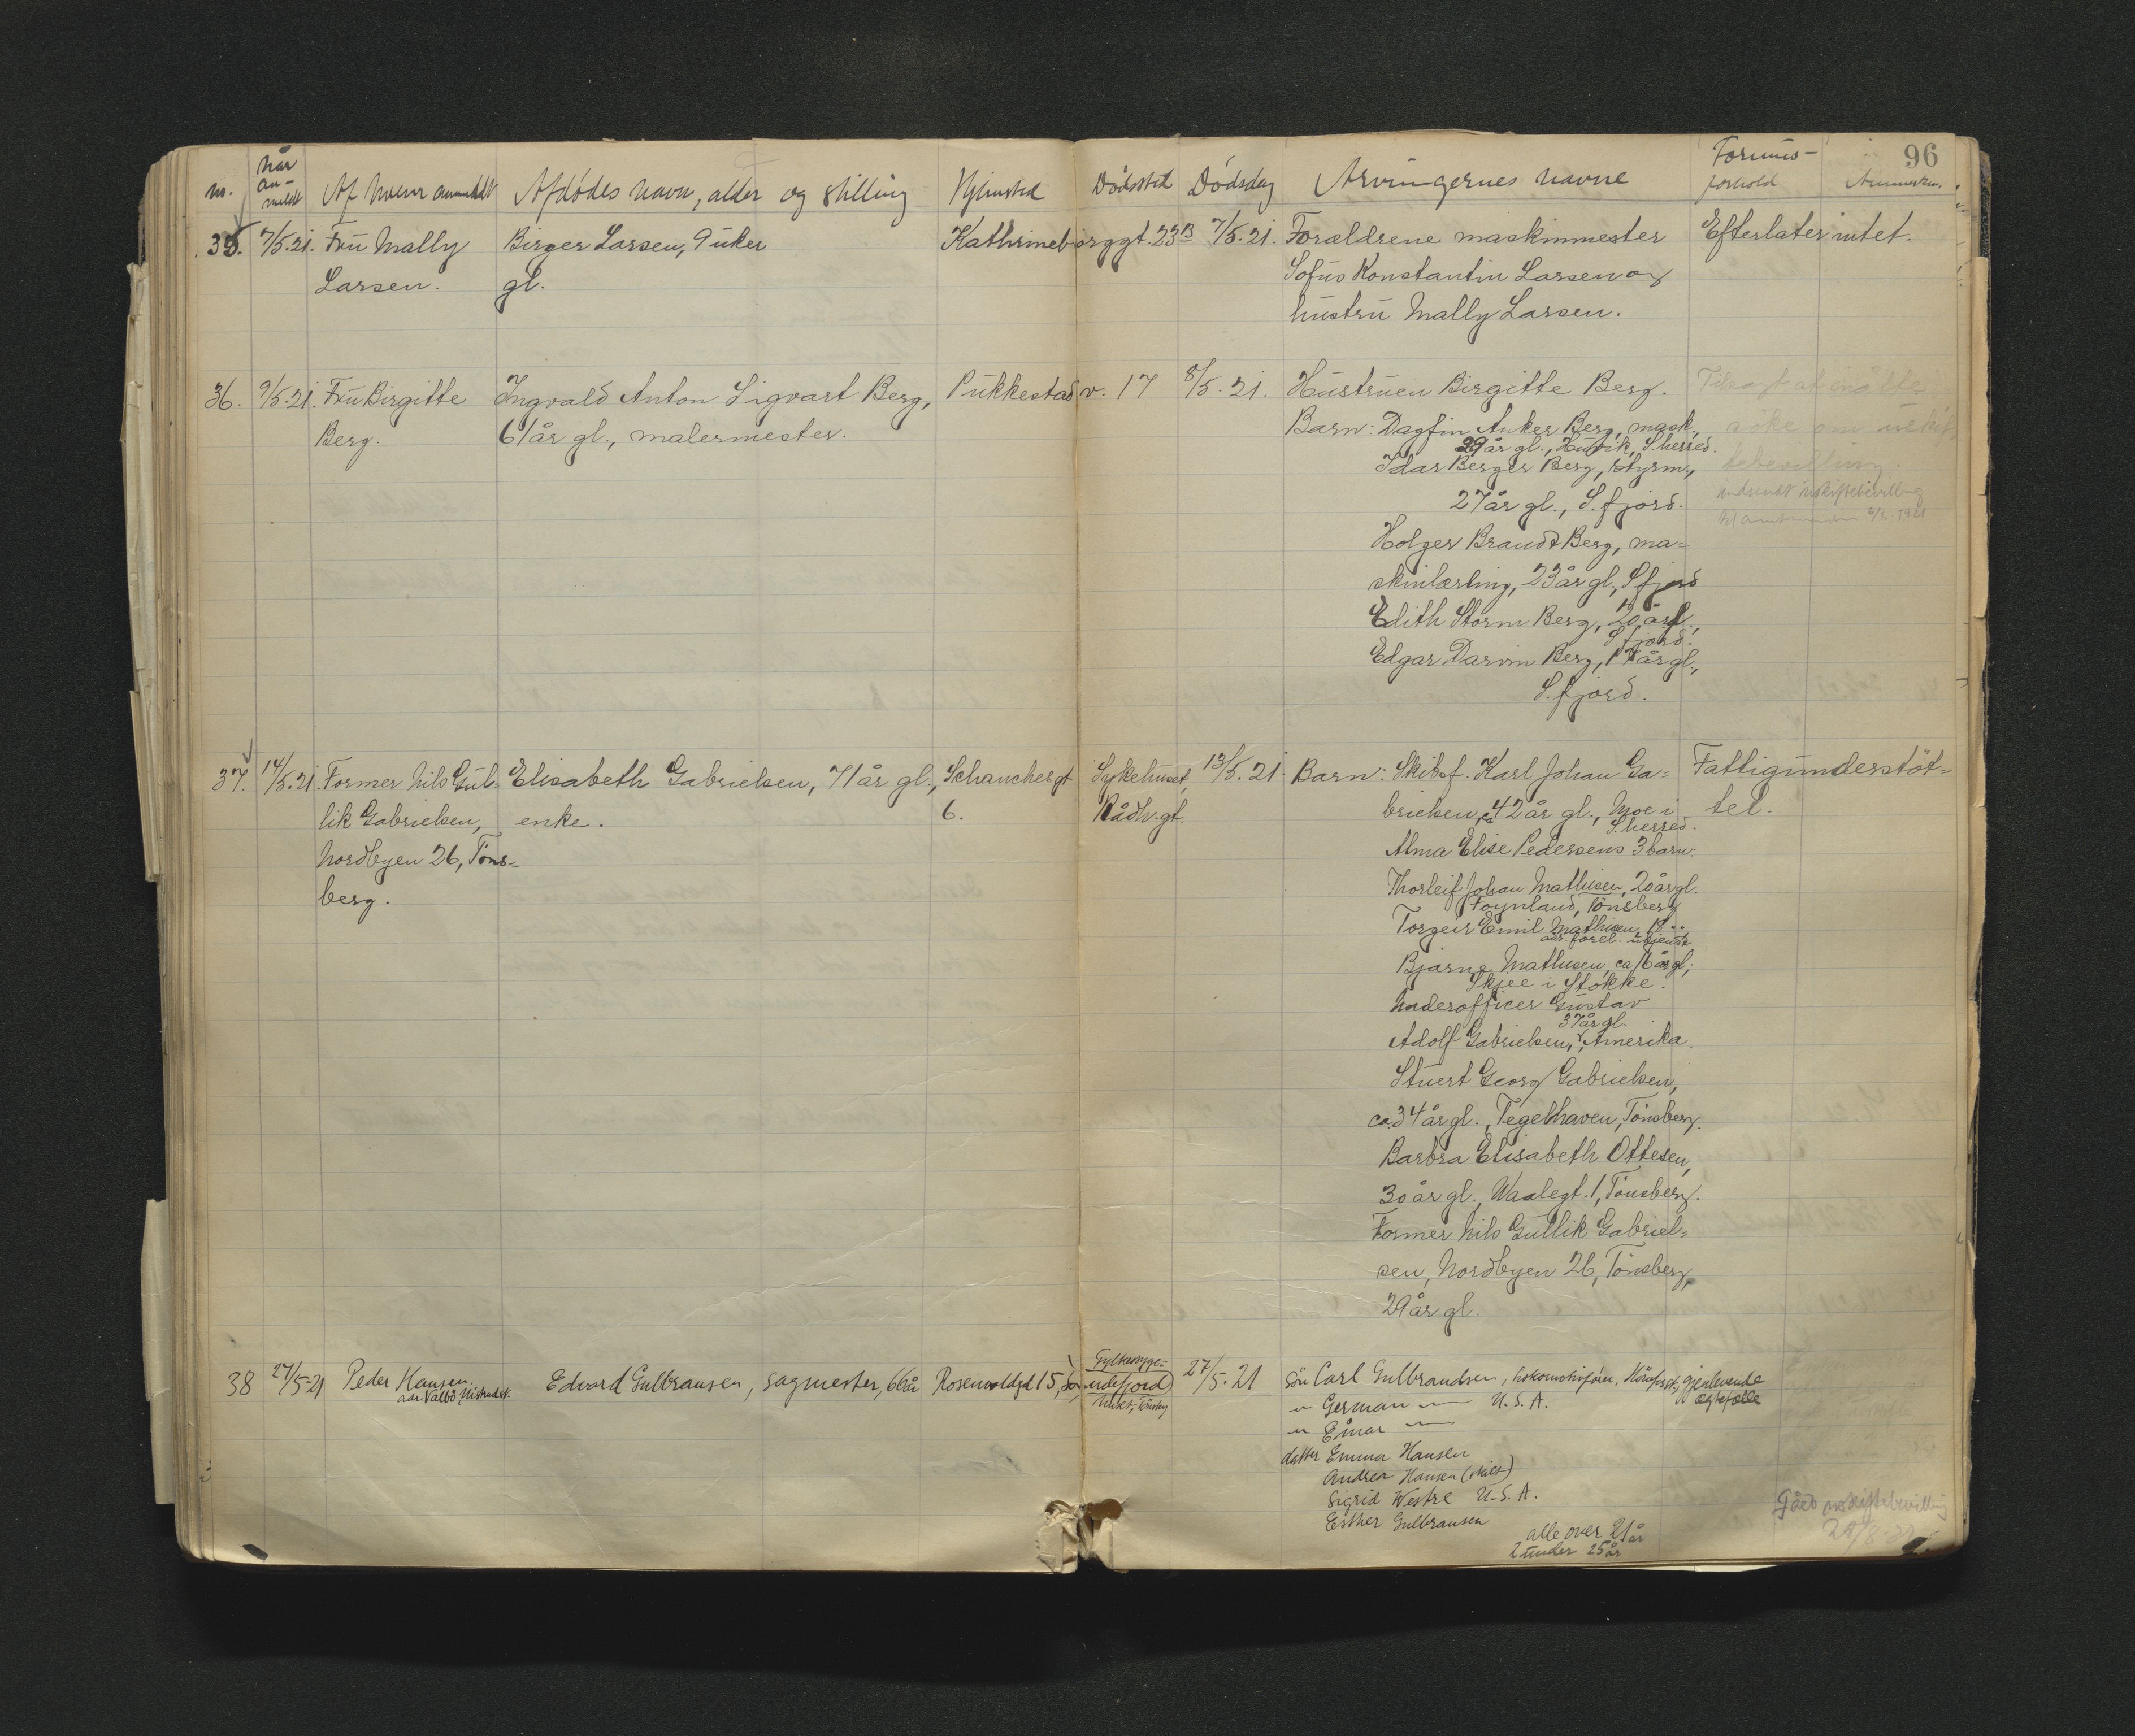 96
nr. Når an-meldt Af hvem anmeldt Afdødes navn, alder og stilling Hjemsted Dødssted Dødsdag Arvingernes navne Formues-forhold Anmerkn.
35. 7/5.21. Fru Mally Birger Larsen, 9 uker Kathrineborggt. 23B 7/5.21. Forældrene maskinmester Efterlater intet.
Larsen. gl. Sofus Konstantin Larsen og
hustru Mally Larsen.
36. 9/5.21. Fru Birgitte Ingvald Anton Sigvart Berg, Pukkestadv. 17 8/5.21. Hustruen Birgitte Berg. Tilsagt at måtte
Berg. 61 år gl., malermester. Barn: Dagfin Anker Berg, mask., søke om uskif-
29 år gl., Huvik, S.herred.
Idar Berger Berg, styrm., tebevilling
27 år gl., S.fjord. indsendt uskiftebevilling
til amtmannen 6/6.1921
Holger Brandt Berg, ma-
skinlærling, 23 år gl., S.fjord
Edith Storm Berg, 20 år gl.,
S.fjord.
Edgar Darvin Berg, 17 år gl.,
S.fjord.
37. 14/5.21. Former Nils Gul- Elisabeth Gabrielsen, 71 år gl., Schanchesgt Sykehuset, 13/5.21. Barn: Skibsf. Karl Johan Ga- Fattigunderstøt-
lik Gabrielsen, enke. 6. Rådh.gt. brielsen, ca 42 år gl., Moe i tet.
S.herred.
Nordbyen 26, Tøns- Alma Elise Pedersens 3 barn:
berg. Thorleif Johan Mathisen, 20 år gl.
Føynland, Tønsberg
Torgeir Emil Mathisen, 18 "
adr. forel. ukjendt
Bjarne Mathisen, ca 16 år gl.,
Skjee i Stokke.
Underofficer Gustav
37 år gl.
Adolf Gabrielsen, Amerika.
Stuert Georg Gabrielsen,
ca. 34 år gl., Teglhaven, Tønsberg.
Barbra Elisabeth Ottesen,
30 år gl., Waalegt. 1, Tønsberg.
Former Nils Gullik Gabriel-
sen, Nordbyen 26, Tønsberg,
29 år gl.
38 27/5-21 Peder Hansen Edvard Gulbransen, sagmester, 66 år Rosenvoldgd 15, Sandefjord 27/5.21 søn Carl Gulbrandsen, gjenlevende
adr. Valbo, ægtefælle
" German " U.S.A.
" Einar "
datter Emma Hansen
Andrea Hansen (skilt)
Sigrid Westre U.S.A.
Esther Gulbransen
alle over 21 år
2 under 25 år
uskiftebevilling